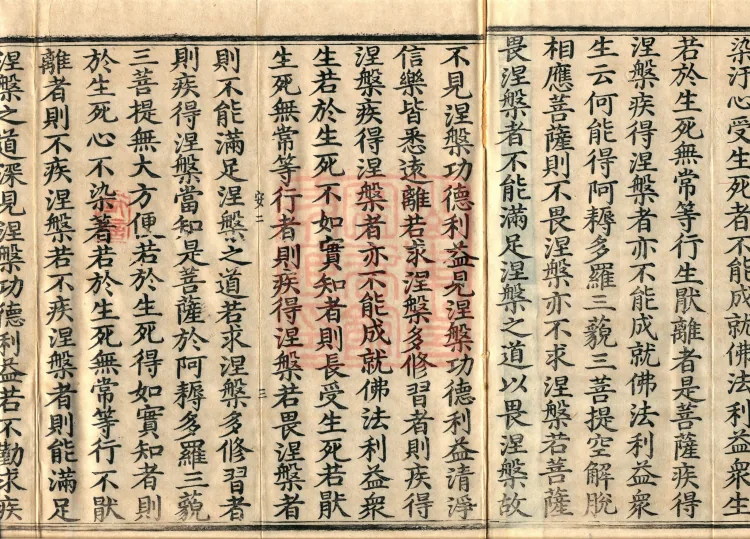 染汙心受生死者不能成就佛法利益衆生
若於生死無常等行生猒離者是菩薩疾得
涅槃疾得涅槃者亦不能成就佛法利益衆
生云何能得阿耨多羅三藐三菩提空解脫
相應菩薩則不畏涅槃亦不求涅槃若菩薩
畏涅槃者不能滿足涅槃之道以畏涅槃故
不見涅槃功德利益見涅槃功德利益清淨
信樂皆悉遠離若求涅槃多修習者則疾得
涅槃疾得涅槃者亦不能成就佛法利益衆
生若於生死不如實知者則長受生死若猒
生死無常等行者則疾得涅槃若畏涅槃者
安二
三
則不能滿足涅槃之道若求涅槃多修習者
則疾得涅槃當知是菩薩於阿耨多羅三藐
三菩提無大方便若於生死得如實知者則
於生死心不染著若於生死無常等行不猒
離者則不疾涅槃若不疾涅槃者則能滿足
涅槃之道深見涅槃功德利益若不勤求疾